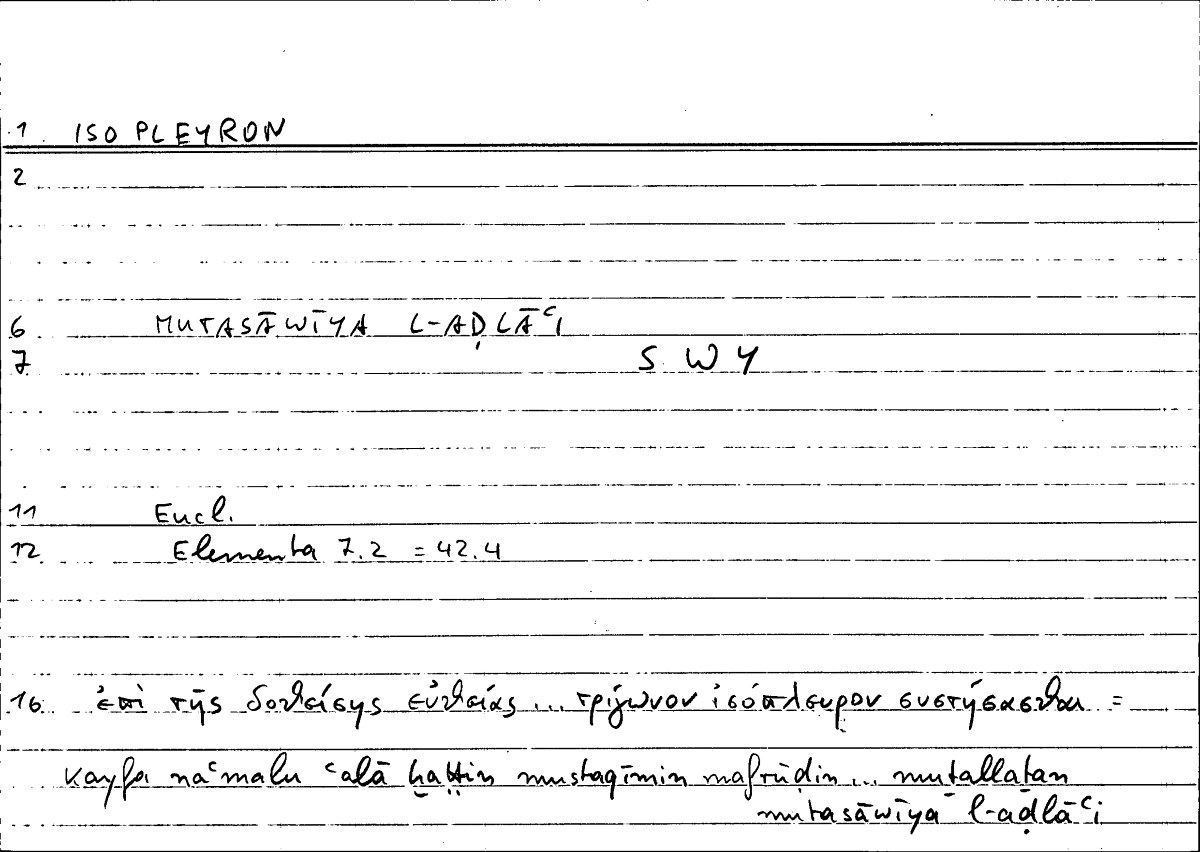 1 ISOPLEYRON
2
6 MUTASĀWĪYA L-AḌLĀʿI
7 S W Y
11 Eucl.
12 Elementa 7.2 = 42.4
16 ἐπὶ τῆς δοθείσης εὐθείας ... τρίγωνον ἰσόπλευρον συστήσασθαι =
kayfa naʿmalu ʿalā ḫaṭṭin mustaqīmin mafrūḍin ... muṯallaṯan
mutasāwīya l-aḍlāʿi